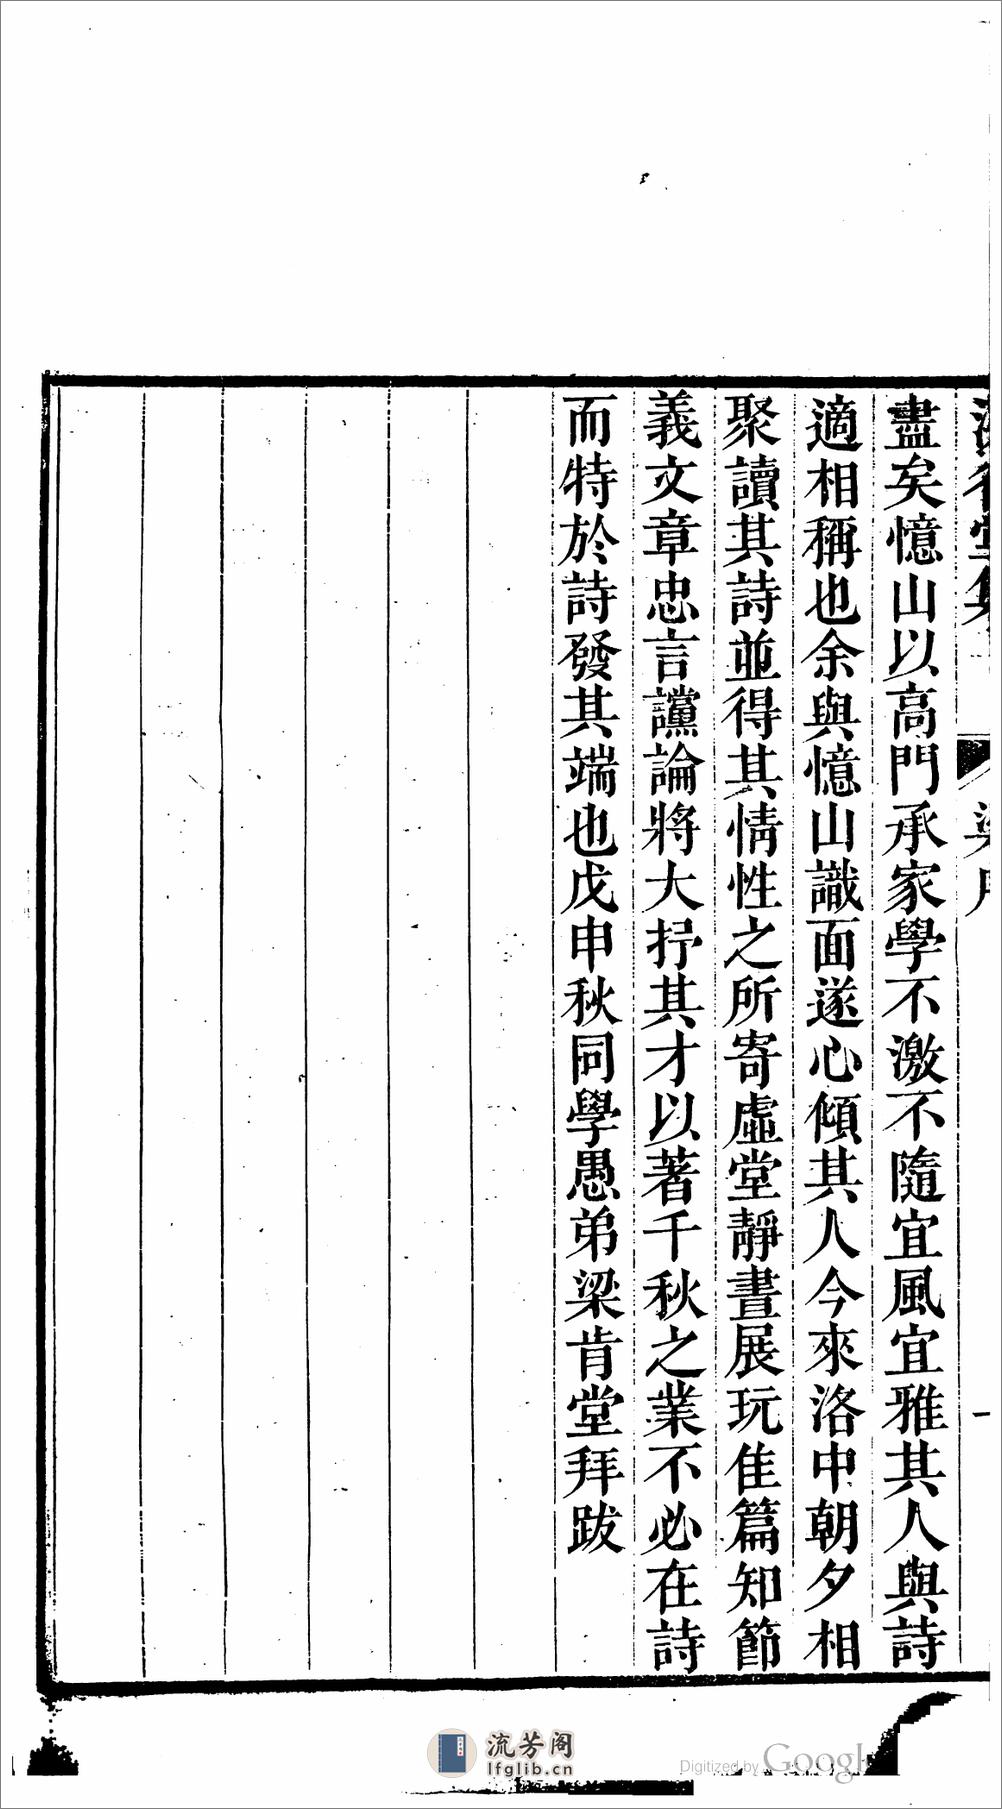 盡矣憶山以高門承家學不激不隨宜風宜雅其人與詩
適相稱也余與憶山識面遂心傾其人今來洛中朝夕相
聚讀其詩並得其情性之所寄虛堂靜晝展玩佳篇知節
義文章忠言讜論將大抒其才以著千秋之業不必在詩
而特於詩發其端也戊申秋同學愚弟梁肯堂拜跋
流芳阁
lfglib.cn
Digitized by Google